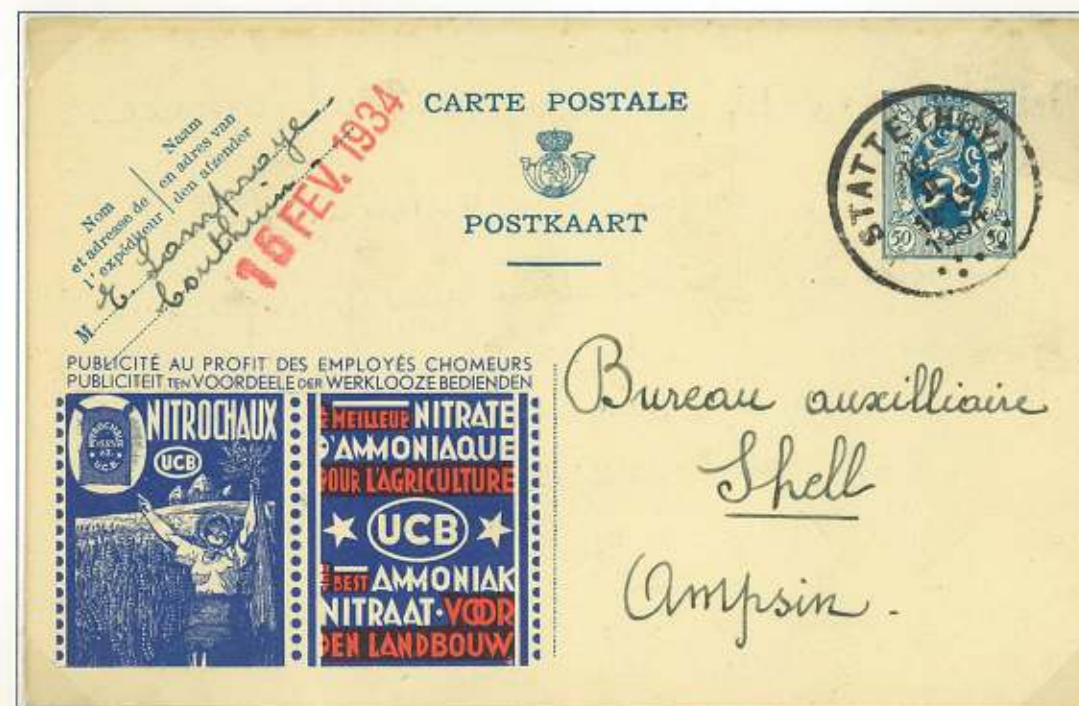 CARTE POSTALE
POSTKAART
Nom
et adresse de
l'expéditeur
Naam
en adres van
den afzender
M E. Lampraye
Couthuin
16 FEV. 1934
STATTE (HUY)
1934
50 50
PUBLICITÉ AU PROFIT DES EMPLOYÉS CHOMEURS
PUBLICITEIT TEN VOORDEELE DER WERKLOOZE BEDIENDEN
NITROCHAUX
UCB
NITROCHAUX
U.C.B.
LE MEILLEUR NITRATE
D'AMMONIAQUE
POUR L'AGRICULTURE
UCB
BEST AMMONIAK
NITRAAT·VOOR
DEN LANDBOUW
Bureau auxilliaire
Shell
Ampsin.